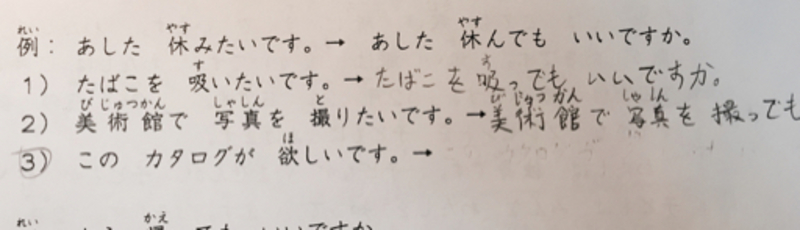 例: あした 休みたいです。→ あした 休んでも いいですか。
1) たばこを 吸いたいです。→ たばこを吸っでも いいですか。
2) 美術館で 写真を 撮りたいです。→美術館で 写真を 撮っても
3) この カタログが 欲しいです。→